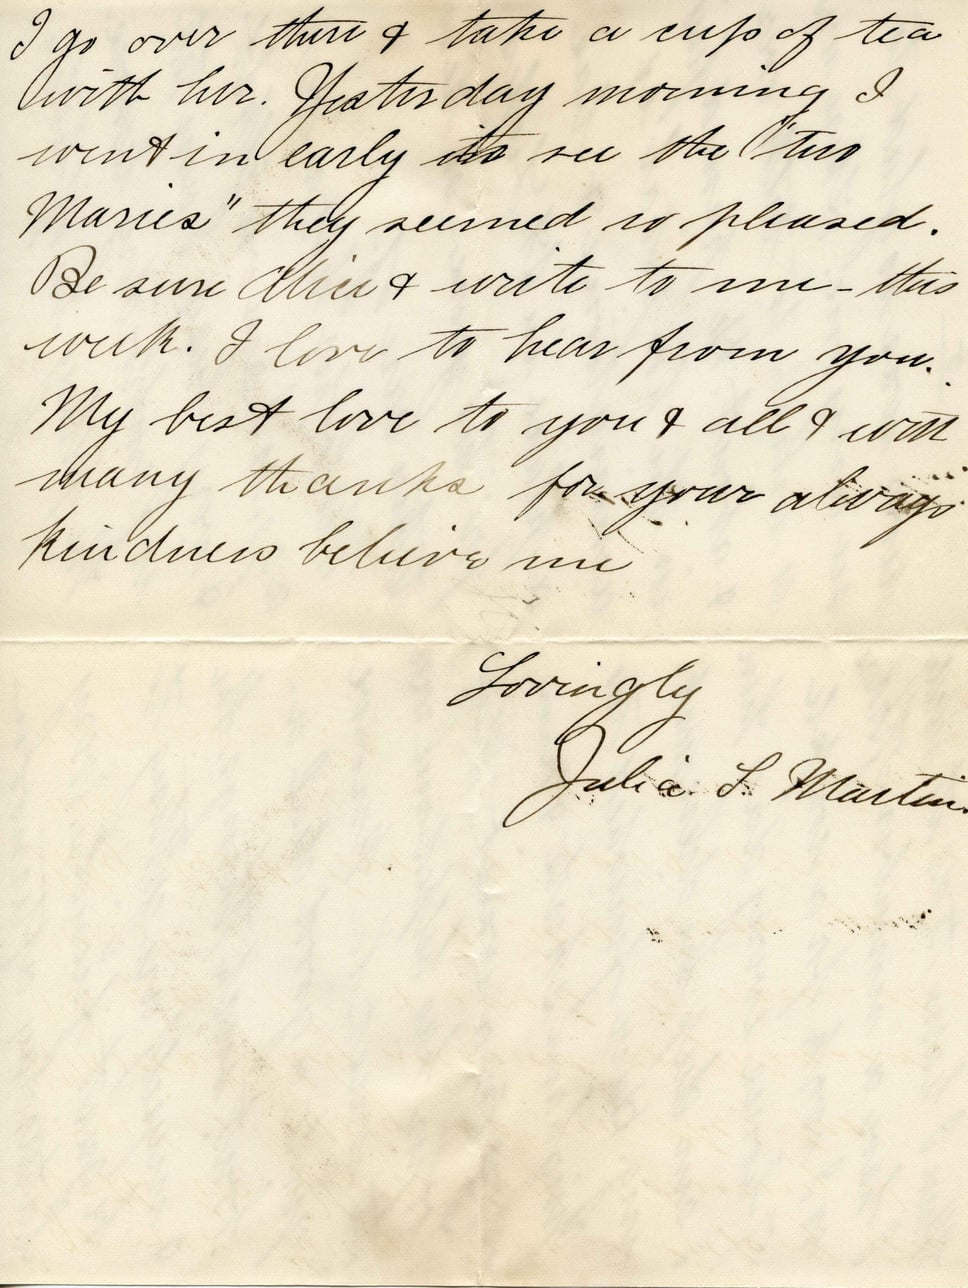 I go over there & take a cup of tea
with her. Yesterday morning I
went in early to see the "two
Maries" they seemed so pleased.
Be sure Alice & write to me - this
week. I love to hear from you.
My best love to you & all & with
many thanks for your always
kindness believe me
Lovingly
Julia S. Martin.